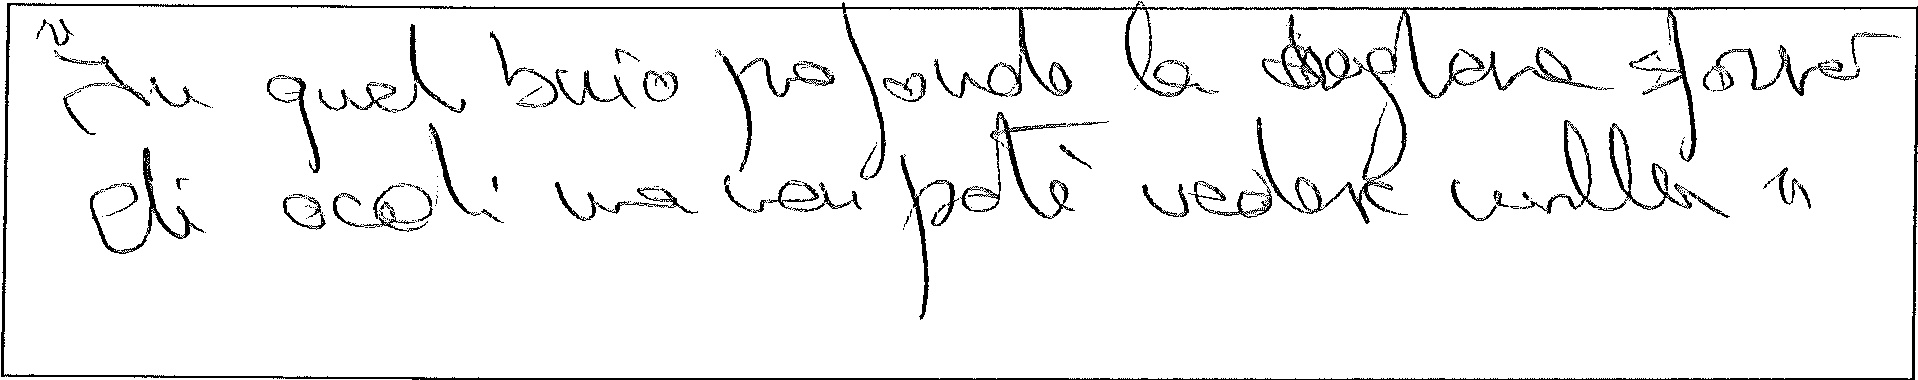 "In quel buio profondo la dragona sforzò
gli occhi ma non poté vedere nulla"